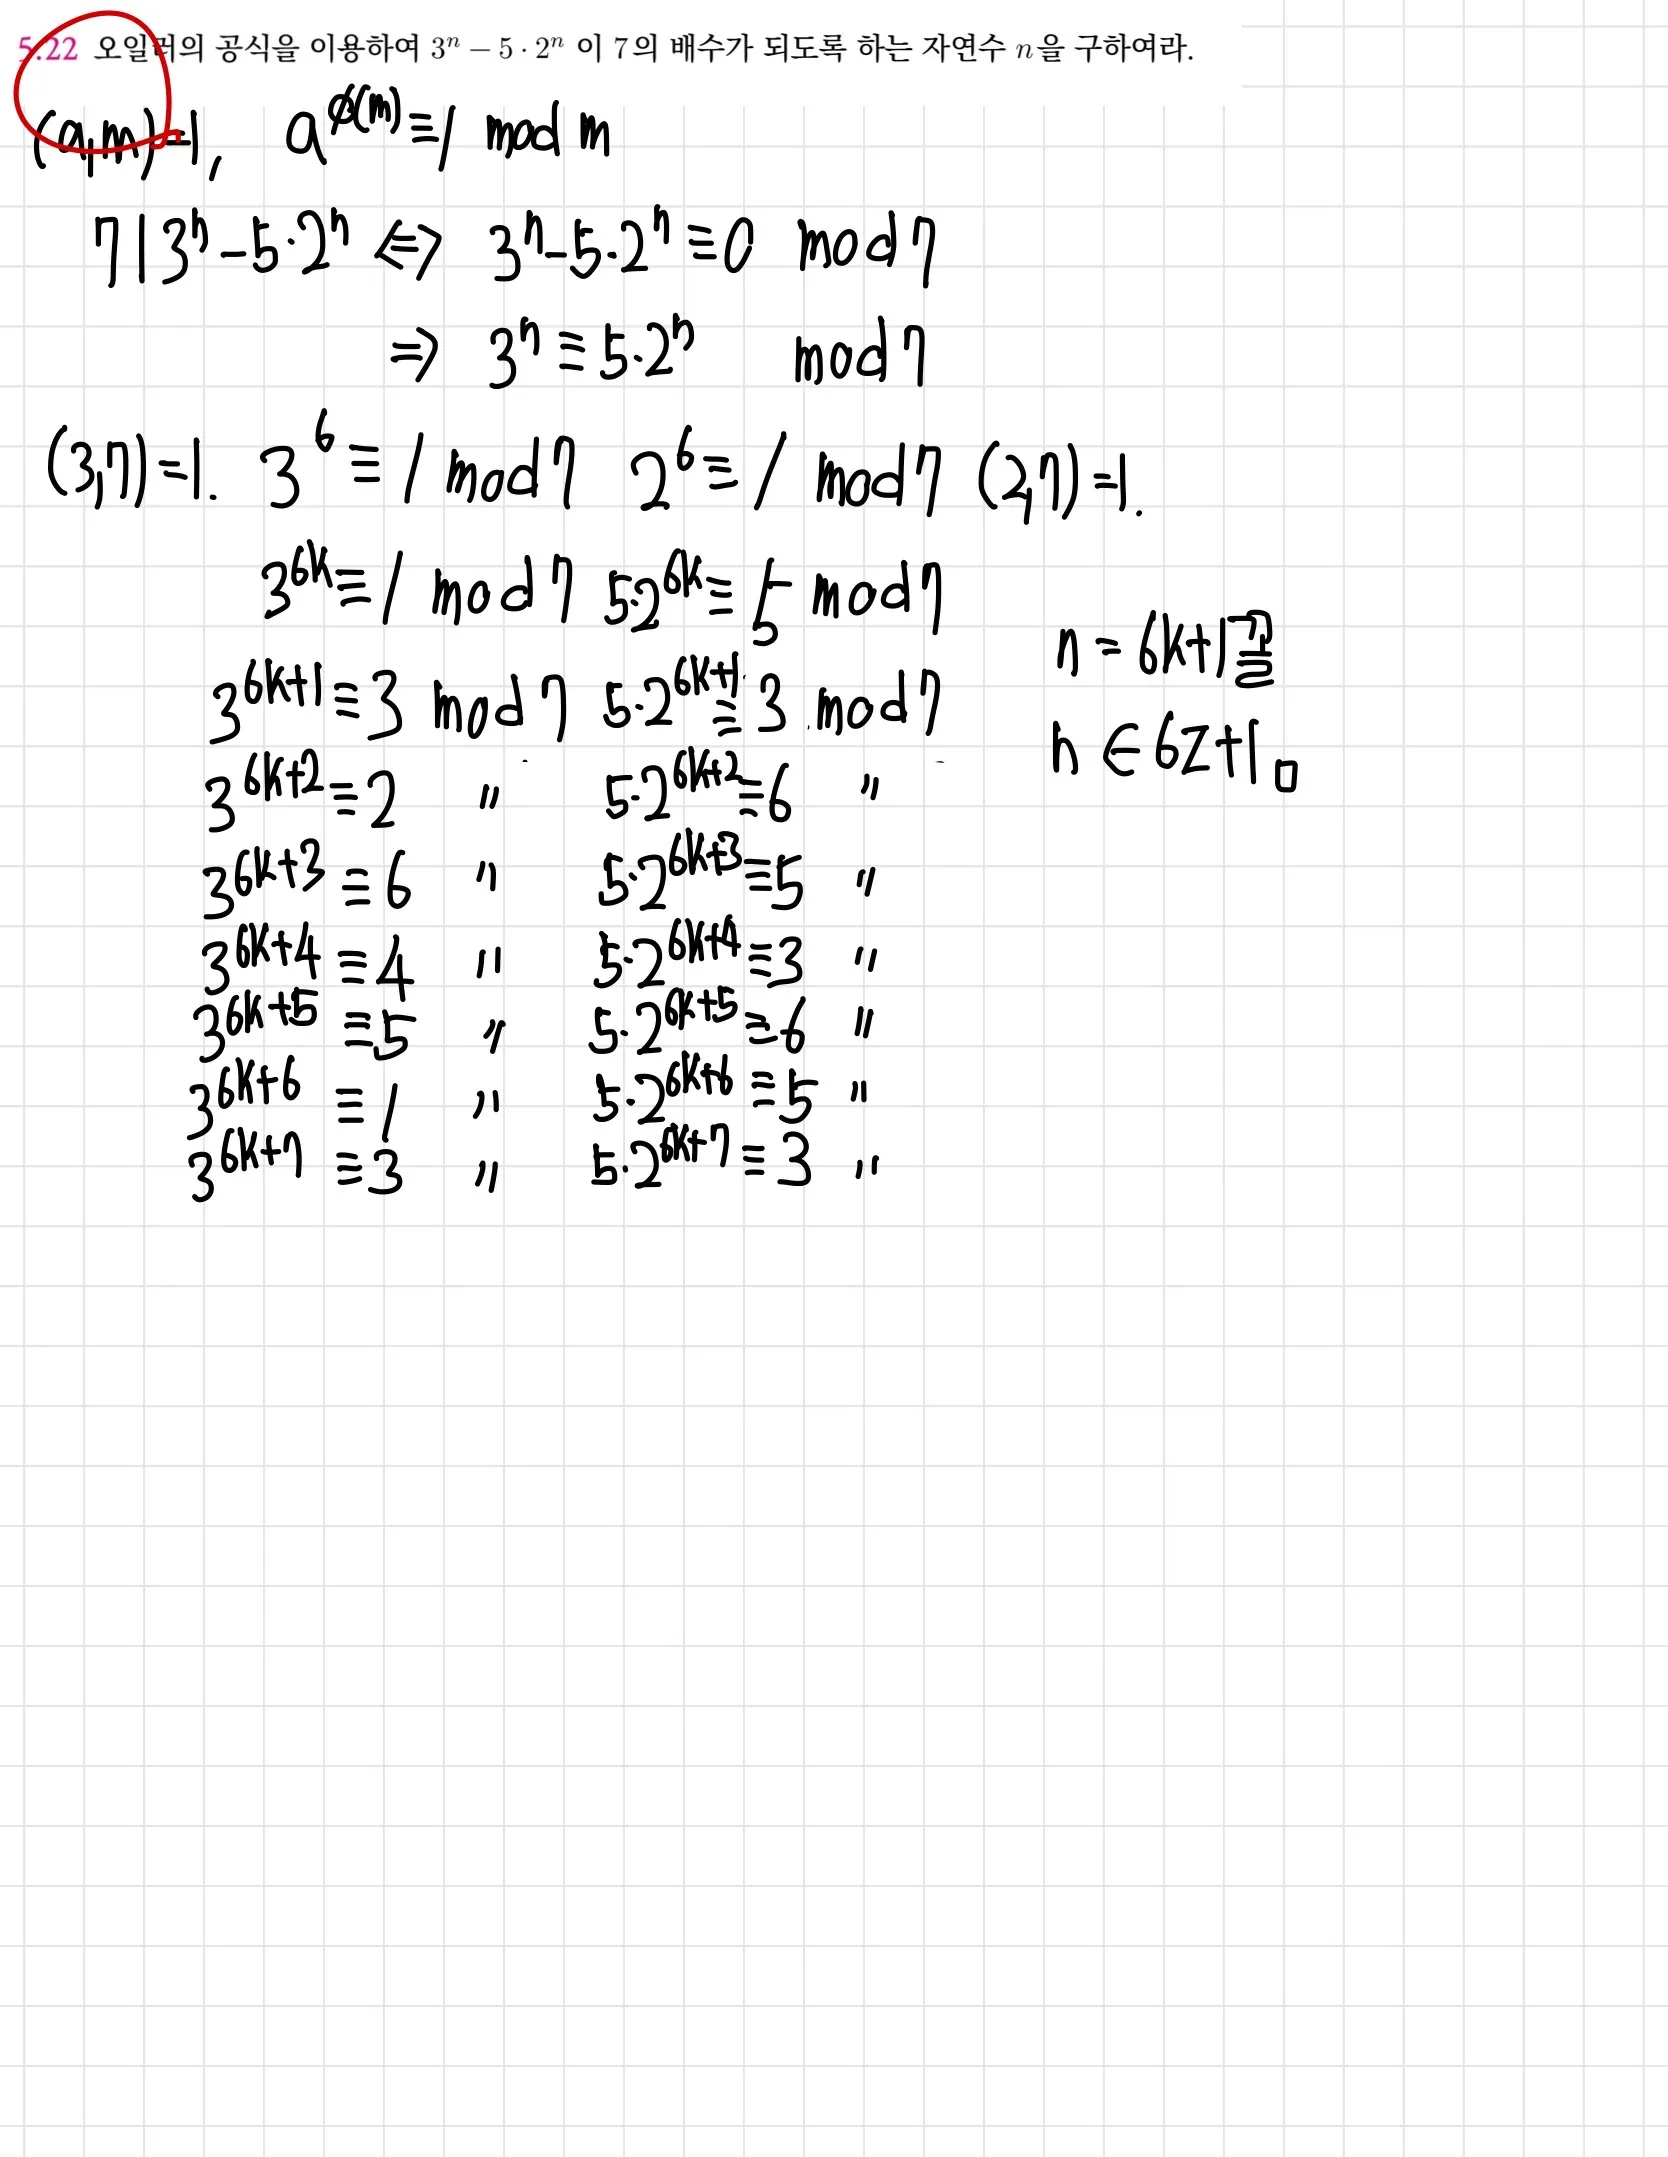 5.22 오일러의 공식을 이용하여 3ⁿ − 5 · 2ⁿ 이 7의 배수가 되도록 하는 자연수 n을 구하여라.
(a,m)=1, a^φ(m) ≡ 1 mod m
7 | 3ⁿ − 5·2ⁿ ⇔ 3ⁿ − 5·2ⁿ ≡ 0 mod 7
⇒ 3ⁿ ≡ 5·2ⁿ mod 7
(3,7)=1. 3^6 ≡ 1 mod 7 2^6 ≡ 1 mod 7 (2,7)=1.
3^6k ≡ 1 mod 7 5·2^6k ≡ 5 mod 7
3^6k+1 ≡ 3 mod 7 5·2^6k+1 ≡ 3 mod 7
3^6k+2 ≡ 2 〃 5·2^6k+2 ≡ 6 〃
3^6k+3 ≡ 6 〃 5·2^6k+3 ≡ 5 〃
3^6k+4 ≡ 4 〃 5·2^6k+4 ≡ 3 〃
3^6k+5 ≡ 5 〃 5·2^6k+5 ≡ 6 〃
3^6k+6 ≡ 1 〃 5·2^6k+6 ≡ 5 〃
3^6k+7 ≡ 3 〃 5·2^6k+7 ≡ 3 〃
n = 6k+1꼴
n ∈ 6Z+1 □